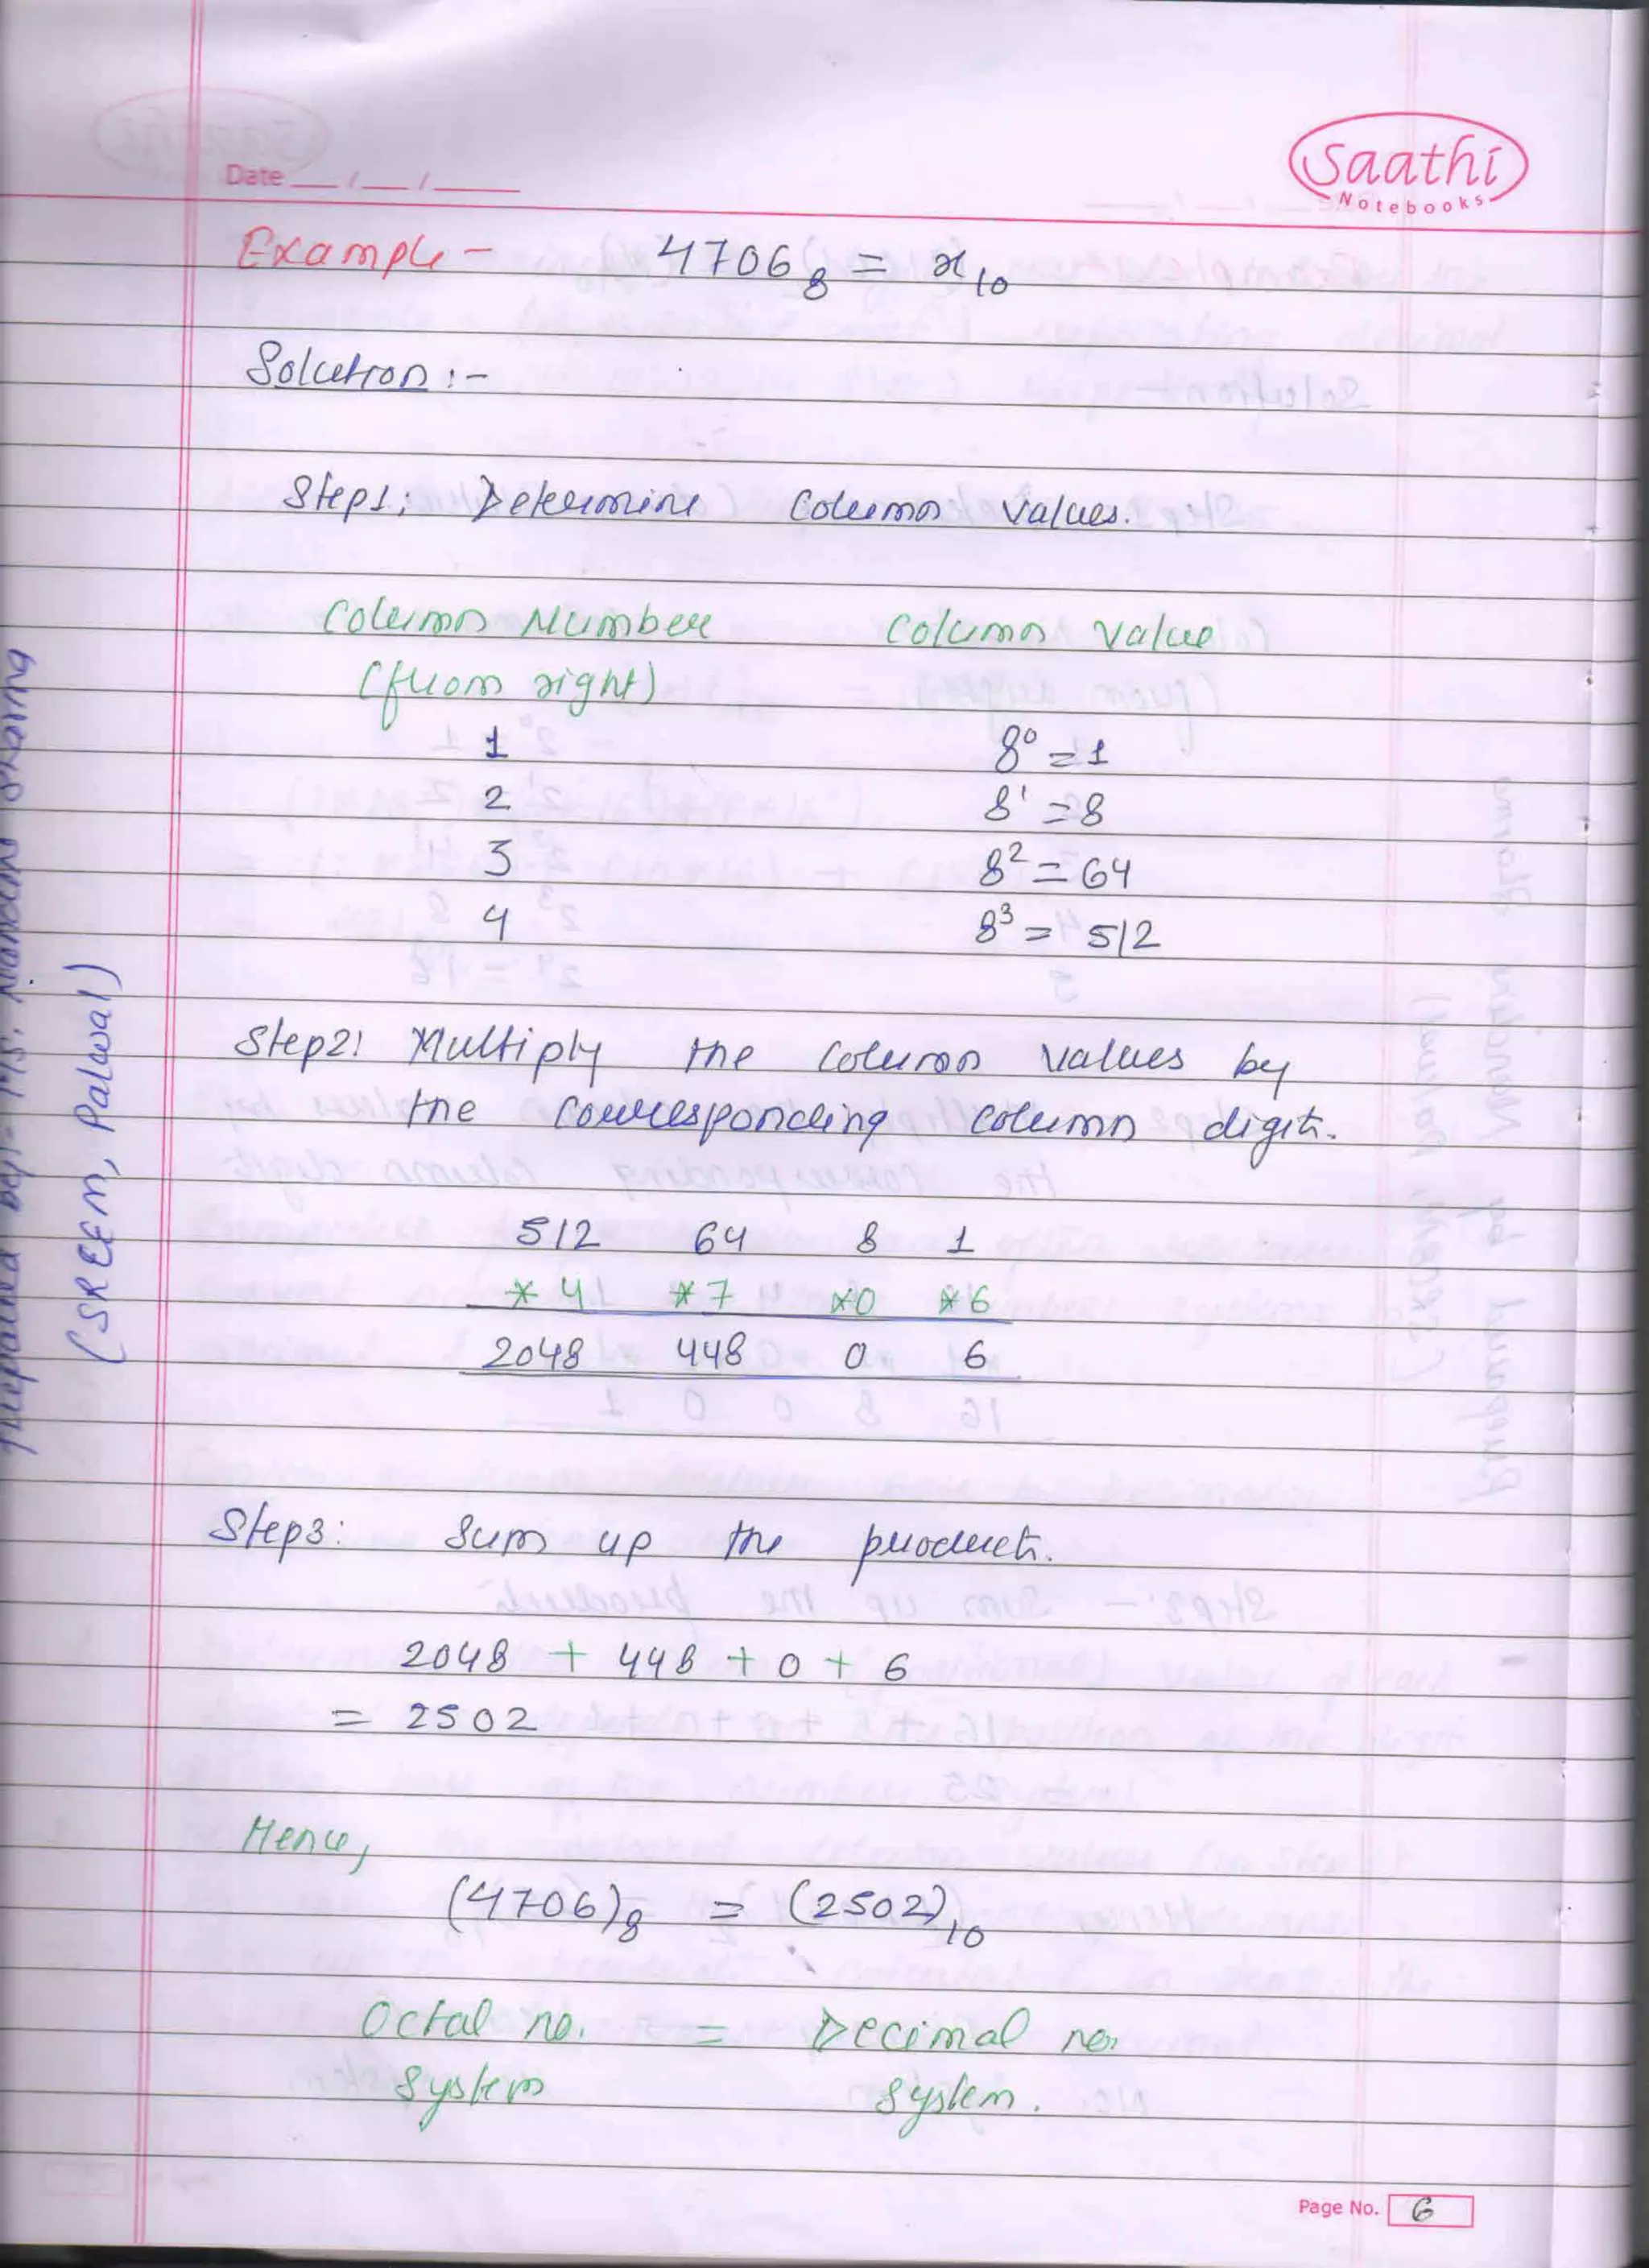 Saathi
Notebooks
Date __/__/____
Example - 4706₈ = x₁₀
Solution :-
Step1; Determine Column Values.
Column Number Column Value
(from right)
1 8⁰ = 1
2 8¹ = 8
3 8² = 64
4 8³ = 512
Step2: Multiply the column values by
the corresponding column digit.
512 64 8 1
*4 *7 *0 *6
2048 448 0 6
Step3: Sum up the product.
2048 + 448 + 0 + 6
= 2502
Hence,
(4706)₈ = (2502)₁₀
Octal no. = Decimal no.
System System.
Prepared by:- Ms. Nandini Sharma
(SREEM, Palwal)
Page No. 6